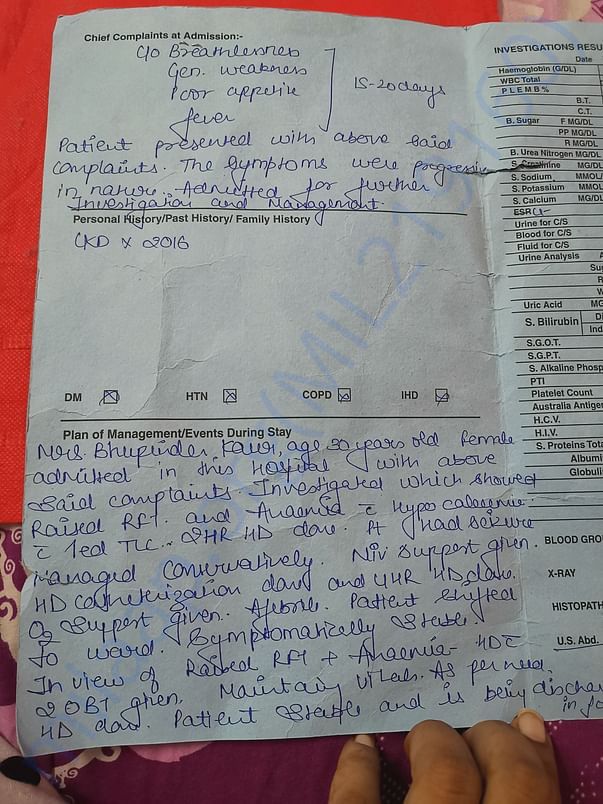 Chief Complaints at Admission:-
C/o Breathlessness
Gen. weakness
Poor appetite
fever
15-20 days
Patient presented with above said
complaints. The symptoms were progressive
in nature. Admitted for further
Investigation and Management.
Personal History/Past History/ Family History
CKD x 2016
DM HTN COPD IHD
Plan of Management/Events During Stay
Mrs. Bhupinder Kaur, age 30 years old female
admitted in this Hospital with above
said complaints. Investigated which showed
Raised RFT. and Anaemia c Hypo calcemia
c ↑ed TLC. 2HR HD done. Pt had seizure
managed conservatively. NIV support given.
HD catheterization done and 4HR HD done.
O2 support given. Afebrile. Patient shifted
to ward. Symptomatically stable.
In view of Raised RFT + Anaemia HD c
2 OBT given. Maintain vitals. As per need
HD done. Patient stable and is being discha
INVESTIGATIONS RESU
Date
Haemoglobin (G/DL)
WBC Total
P L E M B %
B.T.
C.T.
B. Sugar F MG/DL
PP MG/DL
R MG/DL
B. Urea Nitrogen MG/DL
S. Creatinine MG/DL
S. Sodium MMOL/
S. Potassium MMOL
S. Calcium MG/DL
ESR
Urine for C/S
Blood for C/S
Fluid for C/S
Urine Analysis A
Su
R
W
Uric Acid MG
S. Bilirubin Di
Ind
S.G.O.T.
S.G.P.T.
S. Alkaline Phosp
PTI
Platelet Count
Australia Antige
H.C.V.
H.I.V.
S. Proteins Tota
Albumi
Globuli
BLOOD GRO
X-RAY
HISTOPATH
U.S. Abd.